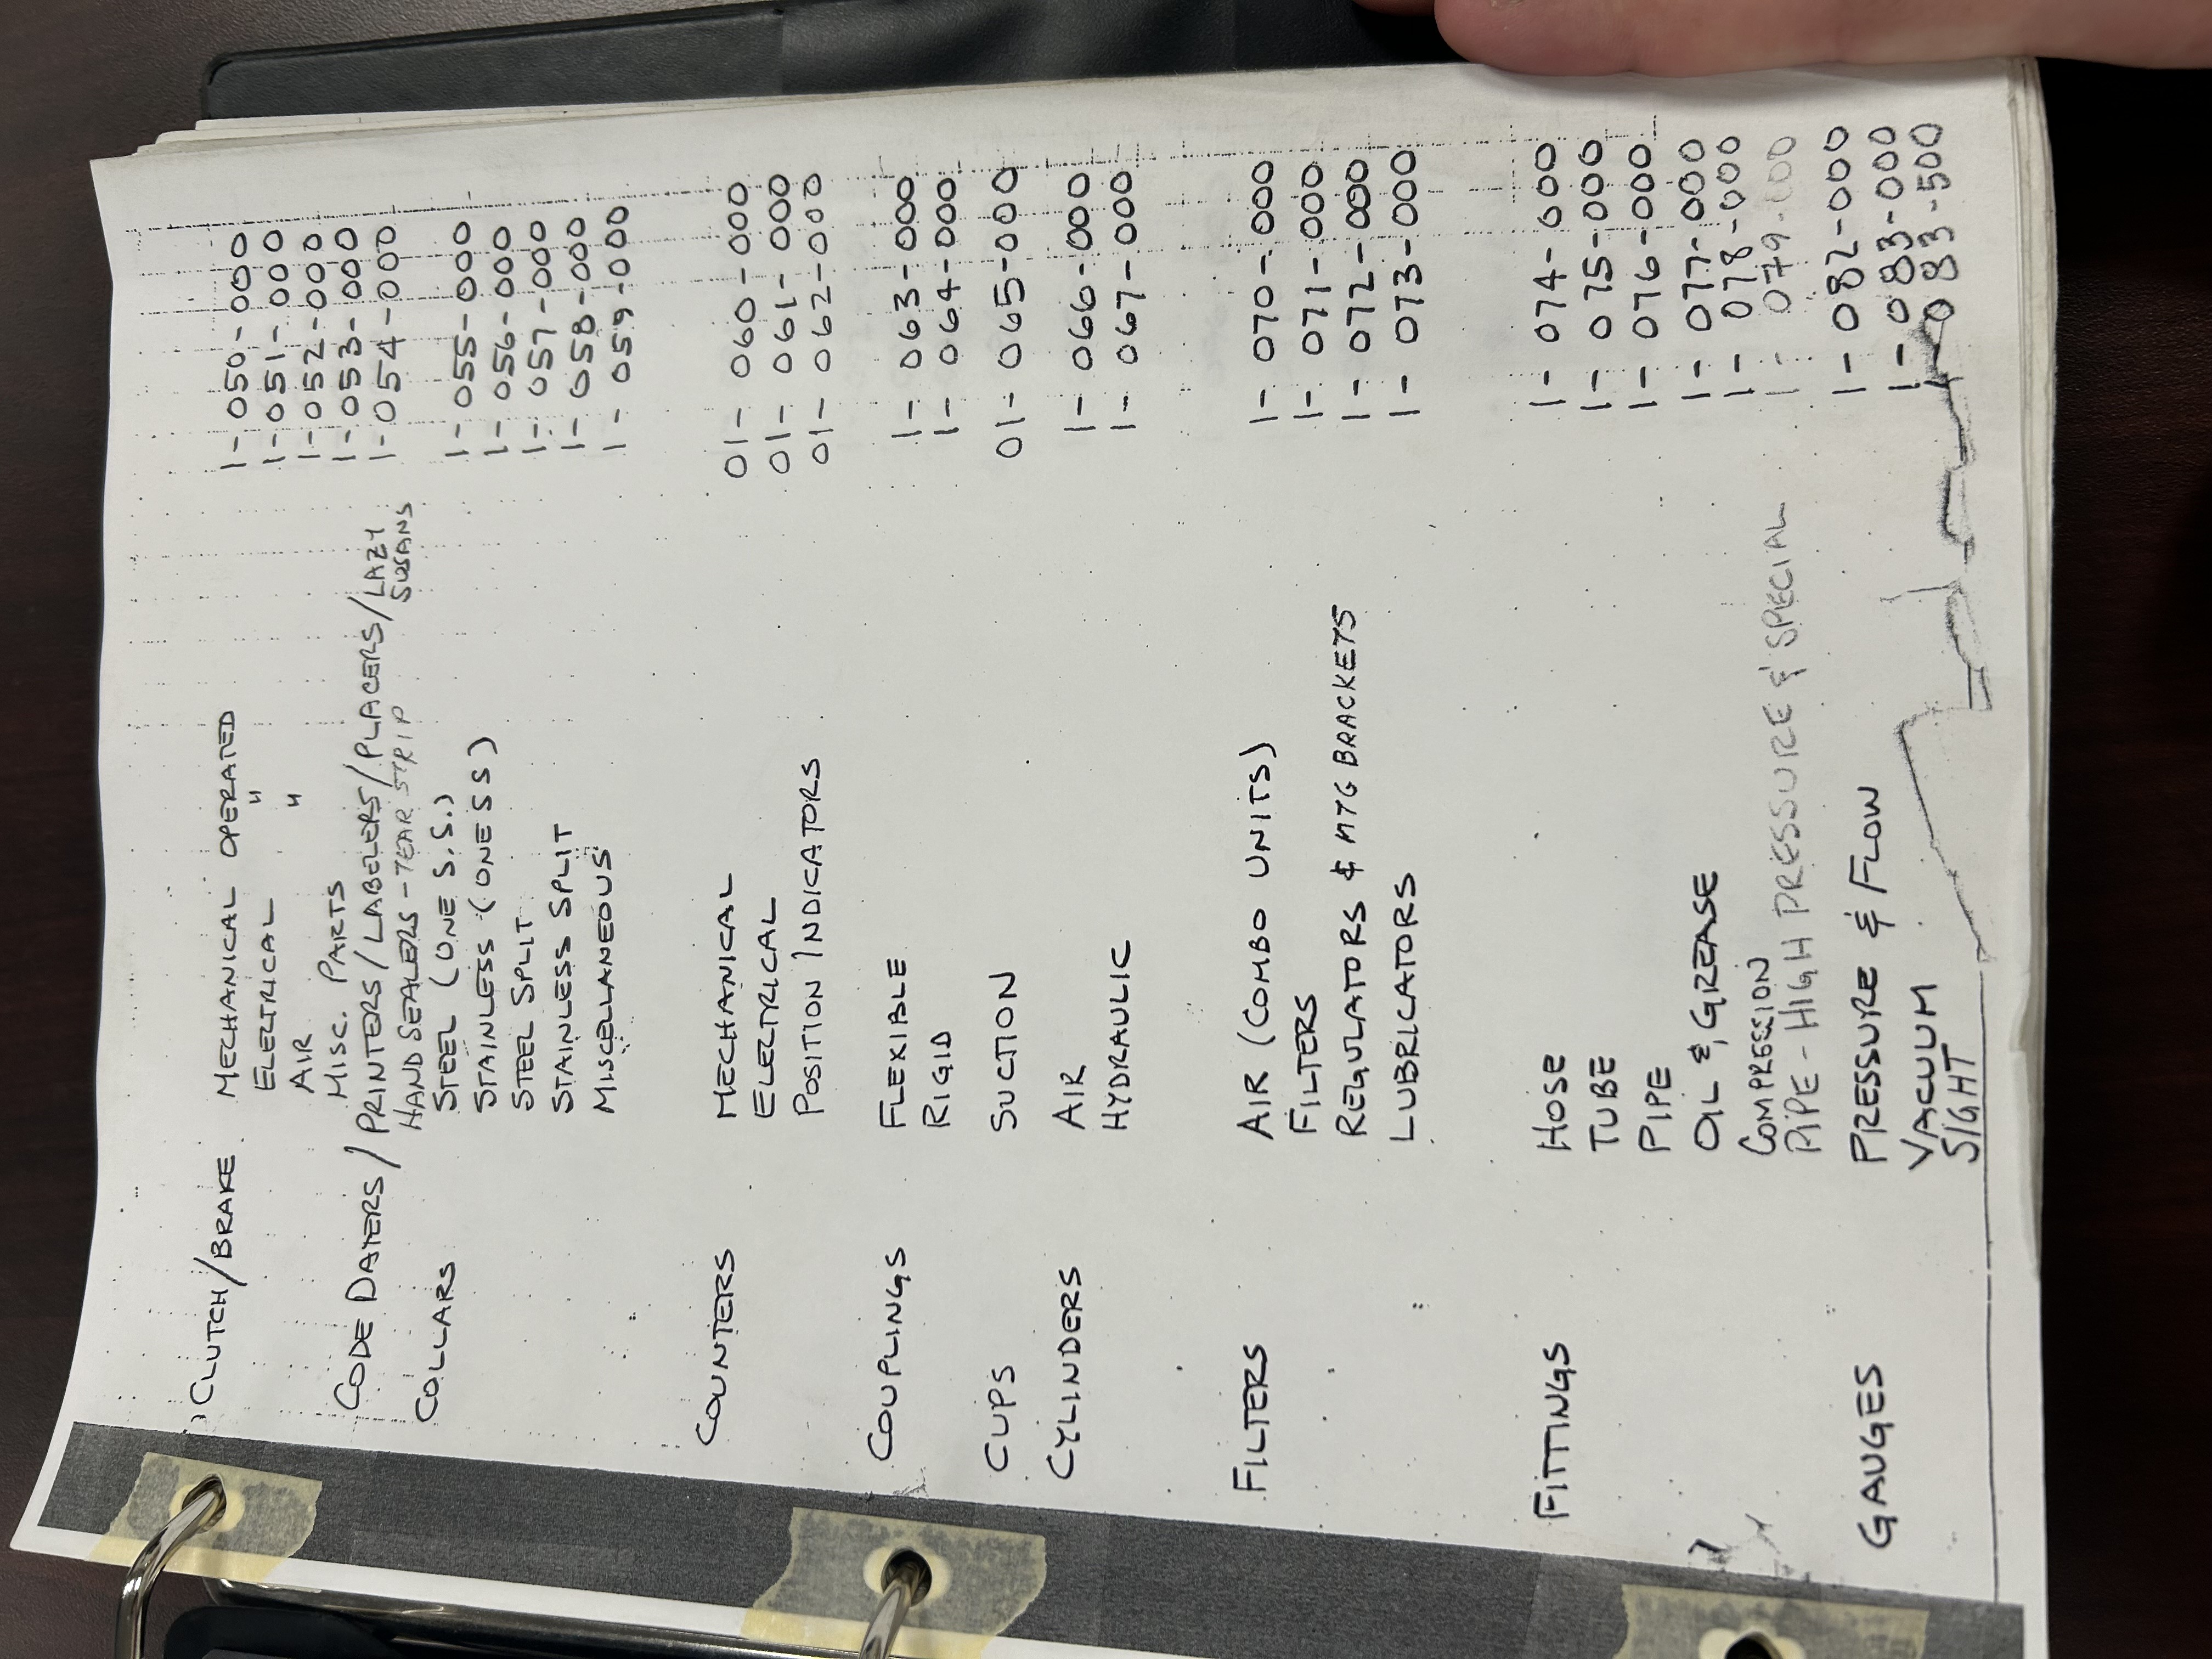 CLUTCH/BRAKE MECHANICAL OPERATED 1-050-000
ELECTRICAL " 1-051-000
AIR " 1-052-000
MISC. PARTS 1-053-000
CODE DATERS/PRINTERS/LABELERS/PLACERS/LAZY 1-054-000
HAND SEALERS - TEAR STRIP SUSANS
COLLARS STEEL (ONE S.S.) 1-055-000
STAINLESS (ONE SS) 1-056-000
STEEL SPLIT 1-057-000
STAINLESS SPLIT 1-058-000
MISCELLANEOUS 1-059-000
COUNTERS MECHANICAL 01-060-000
ELECTRICAL 01-061-000
POSITION INDICATORS 01-062-000
COUPLINGS FLEXIBLE 1-063-000
RIGID 1-064-000
CUPS SUCTION 01-065-000
CYLINDERS AIR 1-066-000
HYDRAULIC 1-067-000
FILTERS AIR (COMBO UNITS) 1-070-000
FILTERS 1-071-000
REGULATORS & MTG BRACKETS 1-072-000
LUBRICATORS 1-073-000
FITTINGS HOSE 1-074-000
TUBE 1-075-000
PIPE 1-076-000
OIL & GREASE 1-077-000
COMPRESSION 1-078-000
PIPE - HIGH PRESSURE & SPECIAL 1-079-000
GAUGES PRESSURE & FLOW 1-082-000
VACUUM 1-083-000
SIGHT 1-083-500